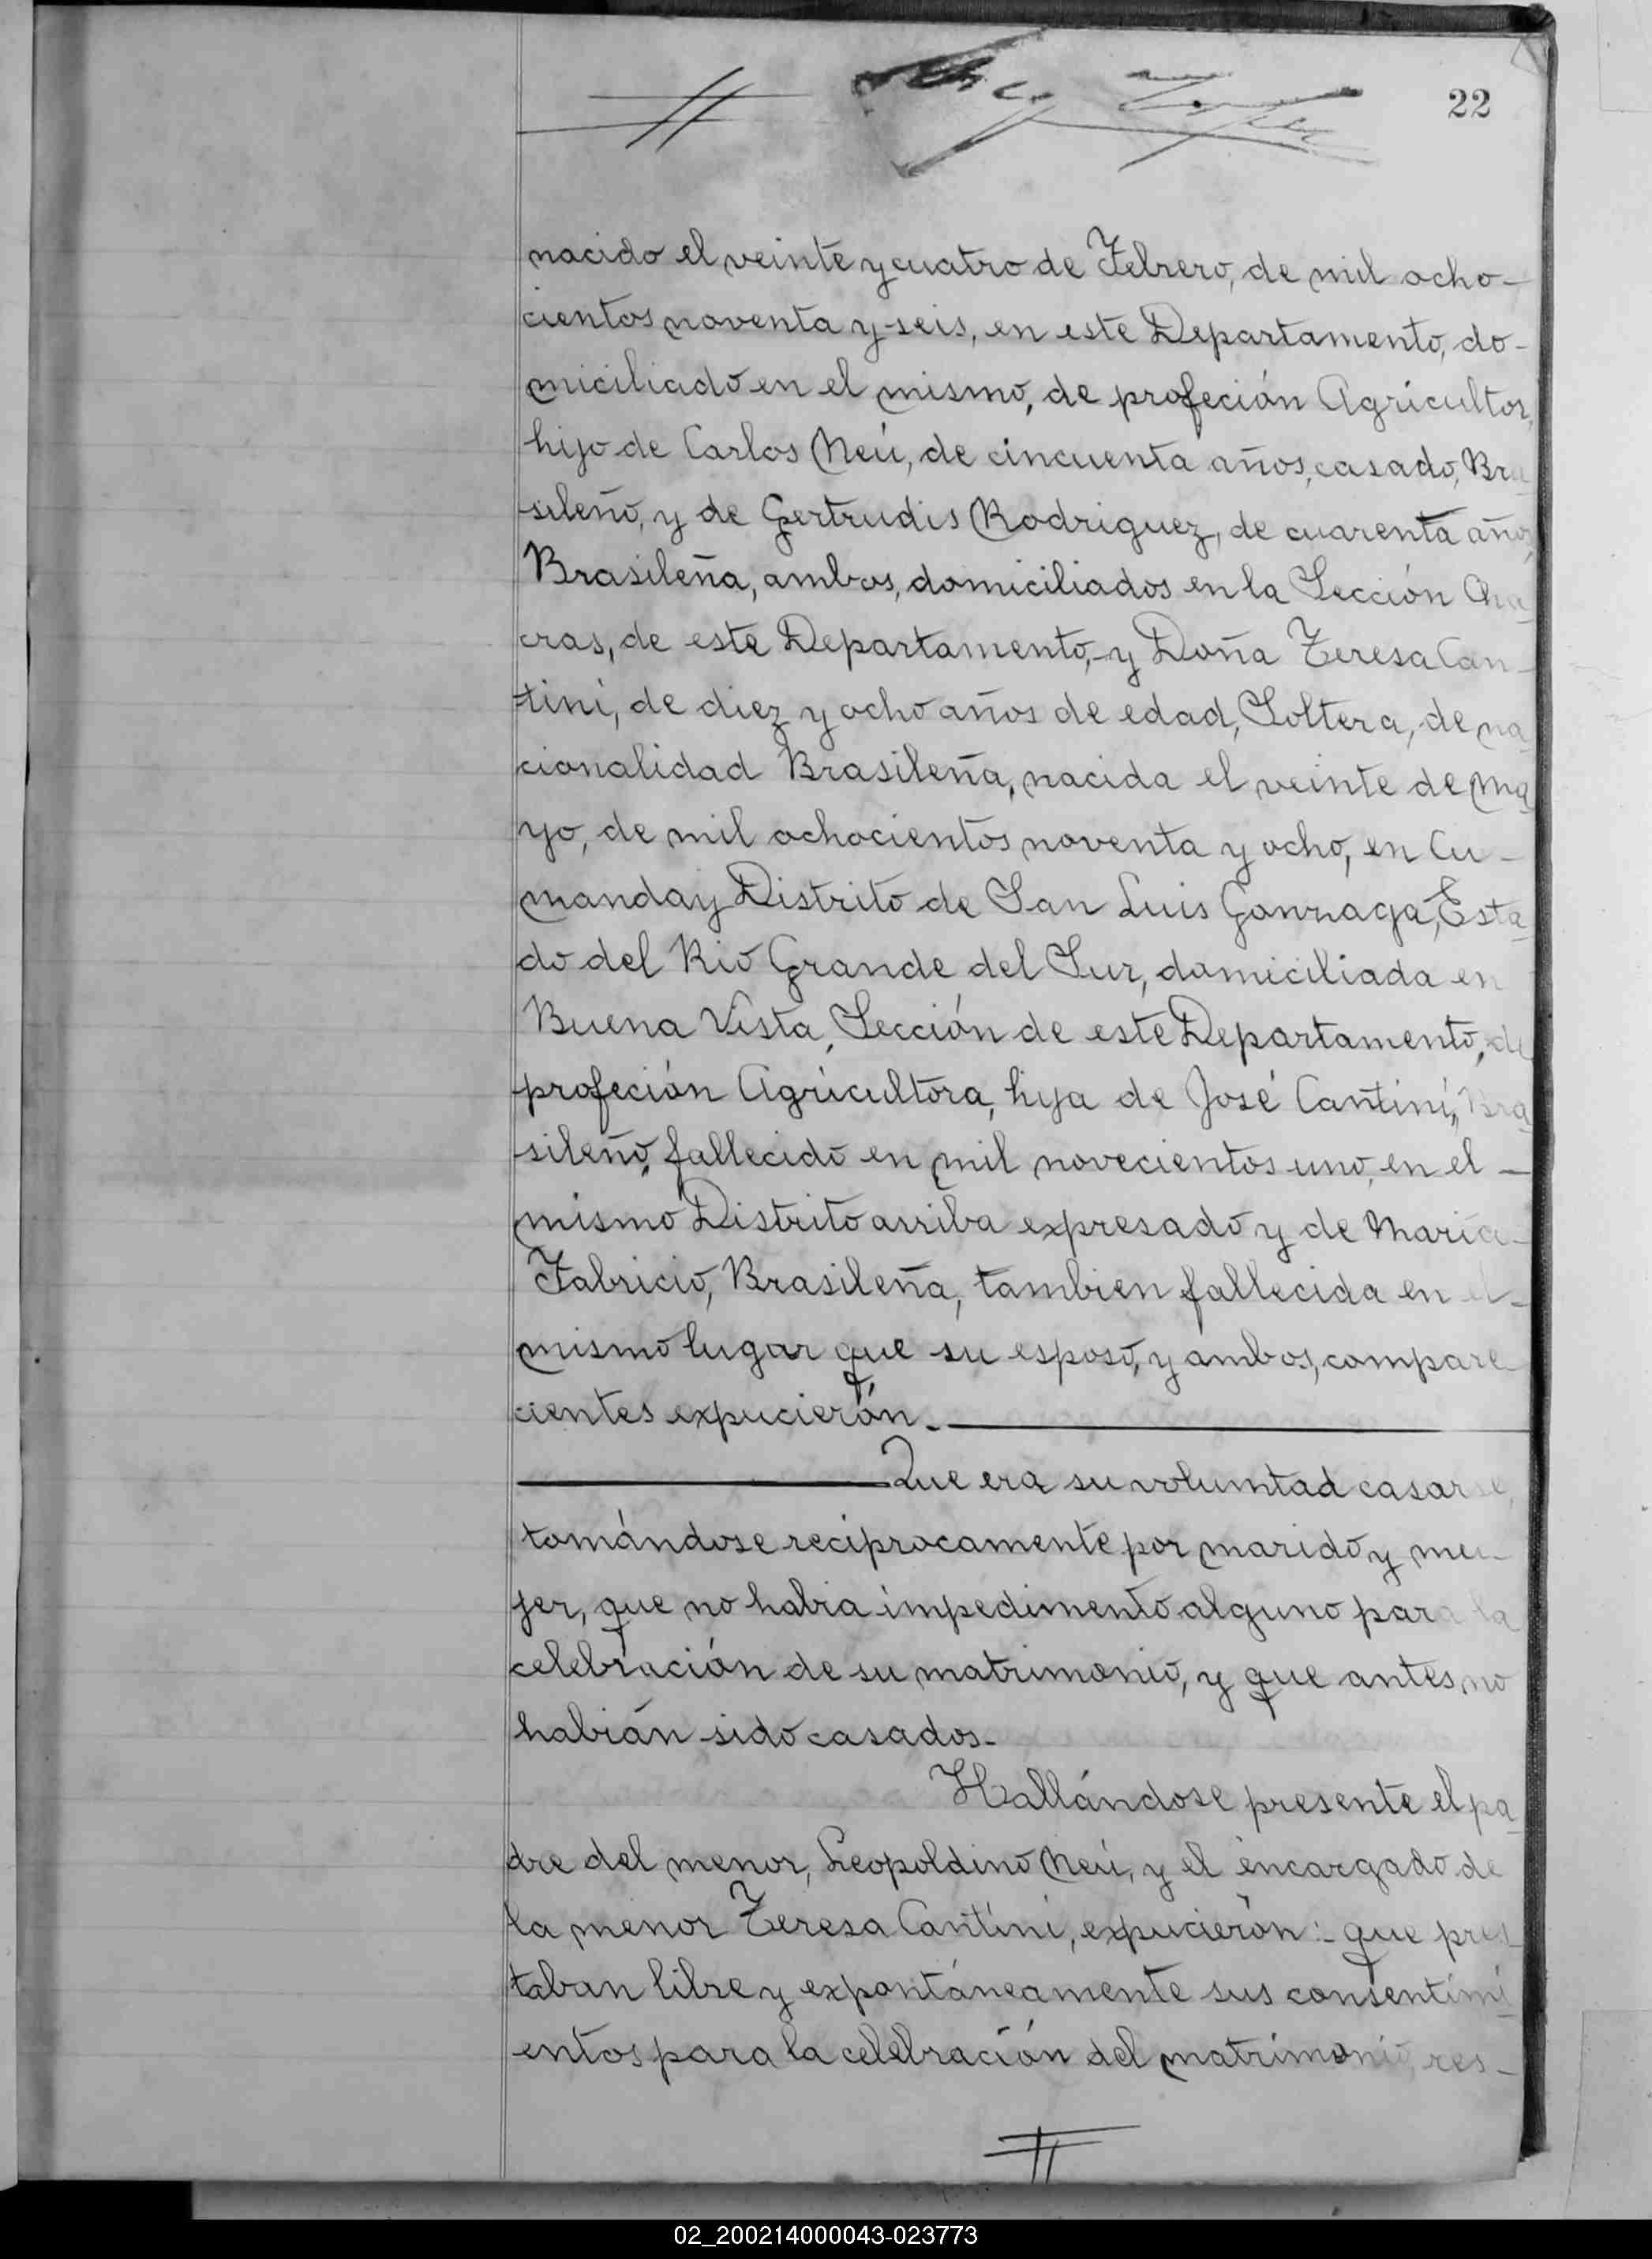 22
nacido el veinte y cuatro de Febrero, de mil ocho-
cientos noventa y seis, en este Departamento, do-
miciliado en el mismo, de profeción Agricultor,
hijo de Carlos Neú, de cincuenta años, casado, Bra
sileño, y de Gertrudis Rodriguez, de cuarenta años
Brasileña, ambos, domiciliados en la Sección Cha
cras, de este Departamento,-y Doña Teresa Can-
tini, de diez y ocho años de edad, Soltera, de na
cionalidad Brasileña, nacida el veinte de Ma
yo, de mil ochocientos noventa y ocho, en Cu-
manday Distrito de San Luis Gonzaga, Esta
do del Rio Grande del Sur, domiciliada en
Buena Vista, Sección de este Departamento, de
profeción Agricultora, hija de José Cantini, Bra
sileño, fallecido en mil novecientos uno, en el -
mismo Distrito arriba expresado y de Maria-
Fabricio, Brasileña, tambien fallecida en el-
mismo lugar que su esposo, y ambos, compare
cientes expucierón.-
Que era su voluntad casarse,
tomándose reciprocamente por marido y mu-
jer, que no habia impedimento alguno para la
celebración de su matrimonio, y que antes no
habián sido casados.-
Hallándose presente el pa
dre del menor, Leopoldino Neú, y el encargado de
la menor Teresa Cantini, expucierón:- que pres
taban libre y expontáneamente sus consentimi
entos para la celebración del matrimonio, res-
02_200214000043-023773